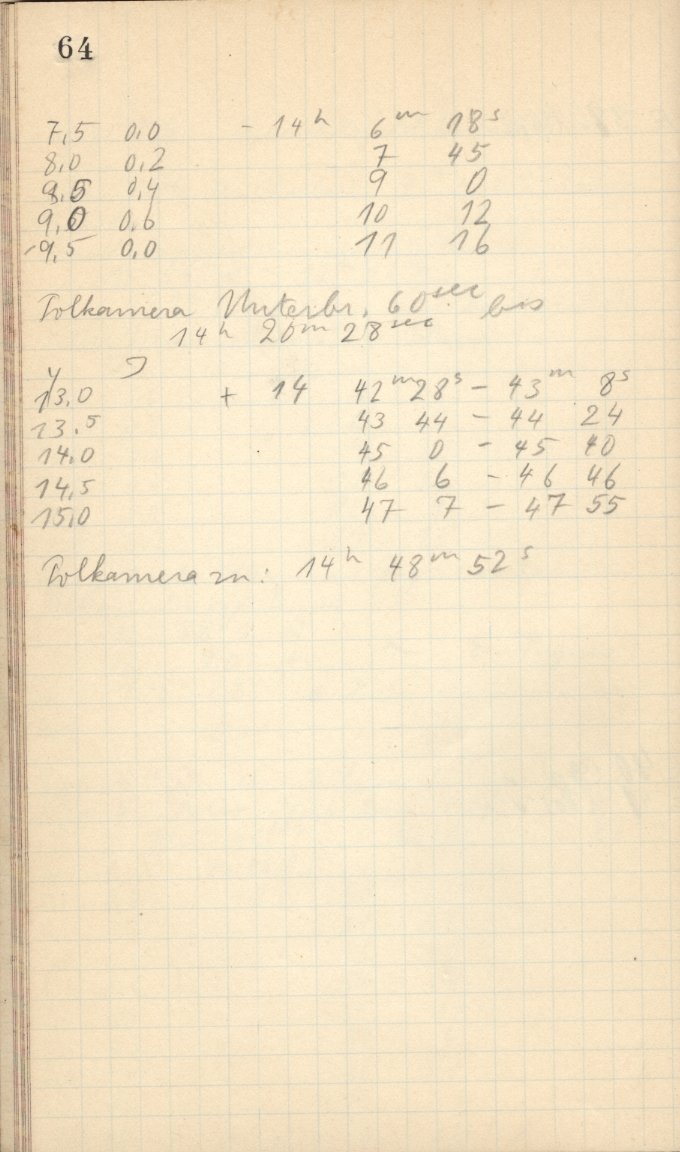 64
7,5 0,0 - 14h 6m 18s
8,0 0,2 7 45
8,5 0,4 9 0
9,0 0,6 10 12
9,5 0,0 11 16
Polkamera Unterbr. 60sec bis
14h 20m 28sec
13.0 + 14 42m 28s - 43m 8s
13.5 43 44 - 44 24
14,0 45 0 - 45 40
14,5 46 6 - 46 46
15,0 47 7 - 47 55
Polkamera zu: 14h 48m 52s